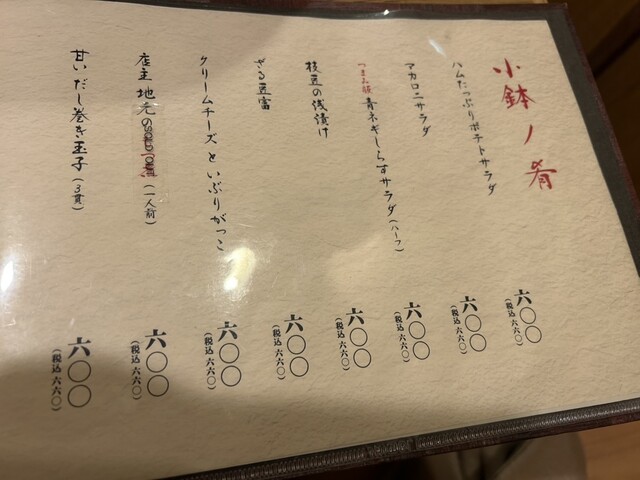 小鉢ノ肴
ハムたっぷりポテトサラダ 六〇〇
(税込 六六〇)
マカロニサラダ 六〇〇
(税込 六六〇)
青ネギしらすサラダ(ハーフ) 六〇〇
(税込 六六〇)
枝豆の浅漬け 六〇〇
(税込 六六〇)
ざる豆富 六〇〇
(税込 六六〇)
クリームチーズといぶりがっこ 六〇〇
(税込 六六〇)
店主 地元の SOLD OUT (一人前) 六〇〇
(税込 六六〇)
甘いだし巻き玉子(3貫) 六〇〇
(税込 六六〇)